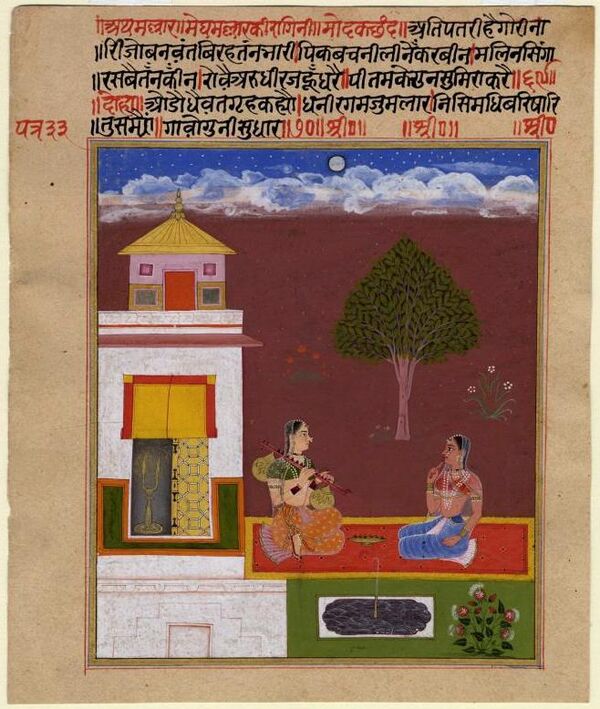 ॥अथमल्लार॥मेघमल्लारकीरागिनी॥मोदकछंद॥अतिपतरीहैगोरीना
॥रिजोबनवंतबिरहतनभारी।पिकबचनीलीनेंकरबीन।मलिनसिंगा
॥रसबैतनकीन।रोवैअरुधीरजहूंधरै।पीतमकेगुनसुमिराकरै॥६९॥
॥दोहा॥ओडौधैवतगृहकह्यौ।धनीरगमजुमलार।निसिमधिबरिषारि
पत्र३३ ॥तुसमै।गावोगुनीसुधार॥७०॥श्री०॥ ॥श्री०॥ ॥श्री०